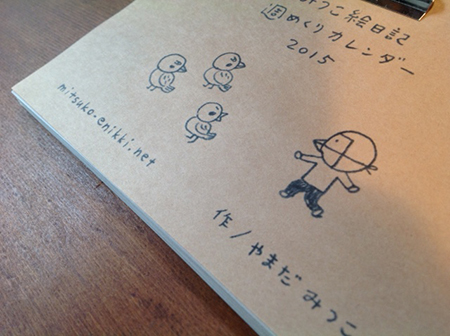 みつこ絵日記
週めくりカレンダー
2015
mitsuko-enikki.net
作/やまだみつこ